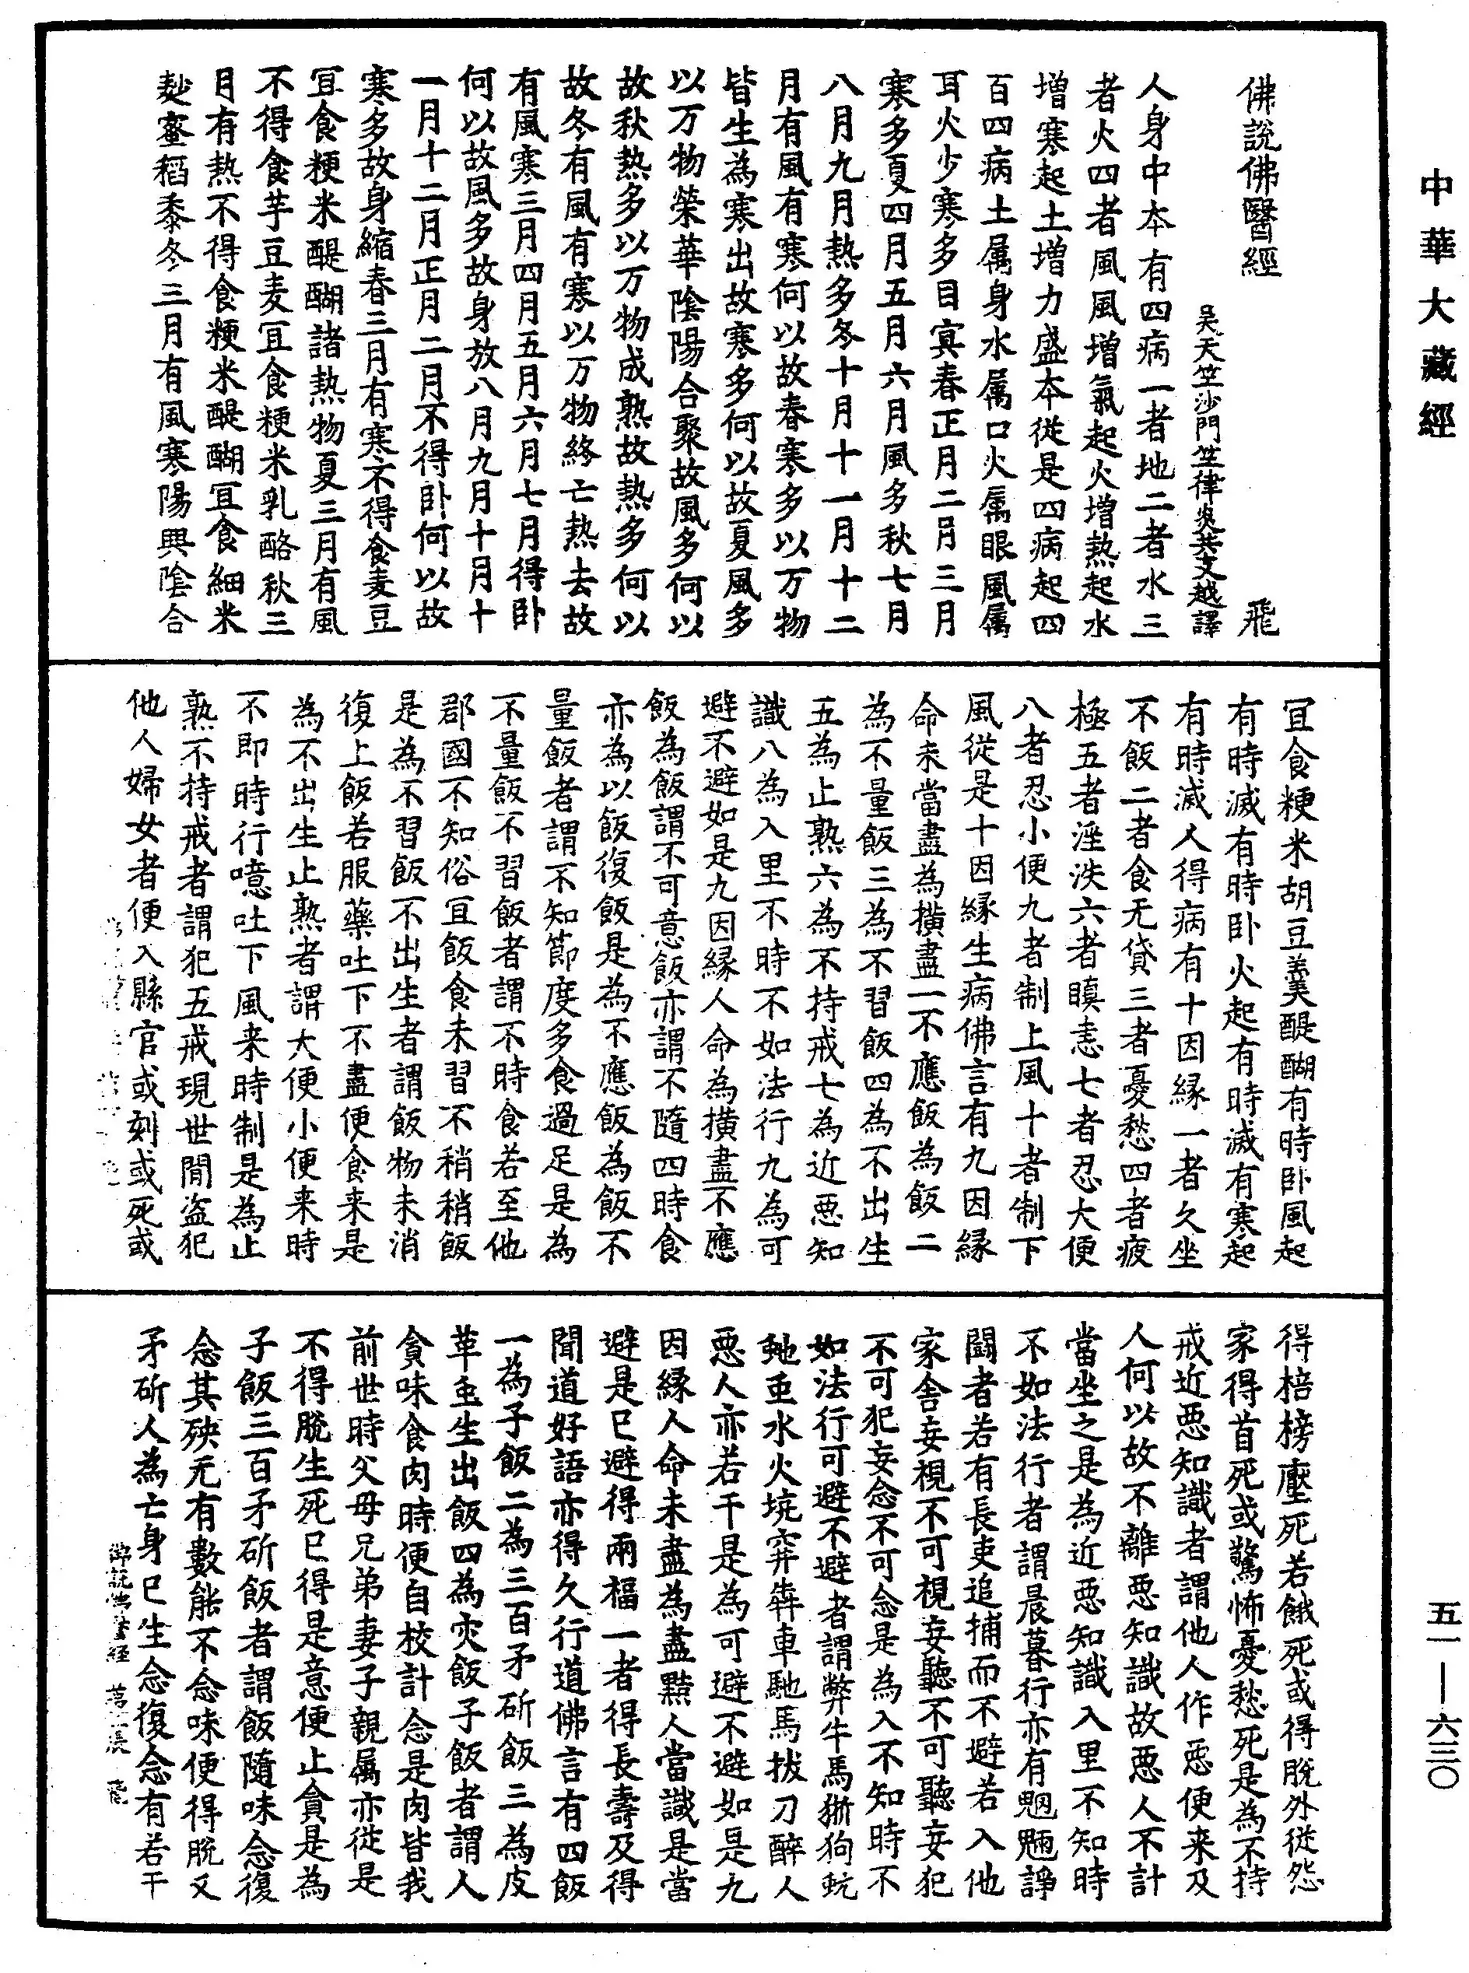 中華大藏經
佛說佛醫經　飛
吳天竺沙門竺律炎共支越譯
人身中本有四病一者地二者水三
者火四者風風增氣起火增熱起水
增寒起土增力盛本從是四病起四
百四病土属身水属口火属眼風属
耳火少寒多目寘春正月二月三月
寒多夏四月五月六月風多秋七月
八月九月熱多冬十月十一月十二
月有風有寒何以故春寒多以万物
皆生為寒出故寒多何以故夏風多
以万物榮華陰陽合聚故風多何以
故秋熱多以万物成熟故熱多何以
故冬有風有寒以万物終亡熱去故
有風寒三月四月五月六月七月得卧
何以故風多故身放八月九月十月十
一月十二月正月二月不得卧何以故
寒多故身縮春三月有寒不得食麦豆
冝食粳米醍醐諸熱物夏三月有風
不得食芋豆麦冝食粳米乳酪秋三
月有熱不得食粳米醍醐冝食細米
麨蜜稻黍冬三月有風寒陽興陰合
冝食粳米胡豆羹醍醐有時卧風起
有時滅有時卧火起有時滅有寒起
有時滅人得病有十因緣一者久坐
不飯二者食无貸三者憂愁四者疲
極五者淫泆六者瞋恚七者忍大便
八者忍小便九者制上風十者制下
風從是十因緣生病佛言有九因緣
命未當盡為撗盡一不應飯為飯二
為不量飯三為不習飯四為不出生
五為止熟六為不持戒七為近惡知
識八為入里不時不如法行九為可
避不避如是九因緣人命為撗盡不應
飯為飯謂不可意飯亦謂不隨四時食
亦為以飯復飯是為不應飯為飯不
量飯者謂不知節度多食過足是為
不量飯不習飯者謂不時食若至他
郡國不知俗冝飯食未習不稍稍飯
是為不習飯不出生者謂飯物未消
復上飯若服藥吐下不盡便食来是
為不出生止熟者謂大便小便来時
不即時行噫吐下風来時制是為止
熟不持戒者謂犯五戒現世間盗犯
他人婦女者便入縣官或刻或死或
得棓榜壓死若餓死或得脫外從怨
家得首死或驚怖憂愁死是為不持
戒近惡知識者謂他人作惡便来及
人何以故不離惡知識故惡人不計
當坐之是為近惡知識入里不知時
不如法行者謂晨暮行亦有魍魎諍
鬪者若有長吏追捕而不避若入他
家舎妄視不可視妄聽不可聽妄犯
不可犯妄念不可念是為入不知時不
如法行可避不避者謂弊牛馬猘狗蚖
虵虫水火坑穽犇車馳馬拔刀醉人
惡人亦若干是為可避不避如是九
因緣人命未盡為盡黠人當識是當
避是已避得兩福一者得長壽及得
聞道好語亦得久行道佛言有四飯
一為子飯二為三百矛斫飯三為皮
革虫生出飯四為灾飯子飯者謂人
貪味食肉時便自校計念是肉皆我
前世時父母兄弟妻子親属亦從是
不得脫生死已得是意便止貪是為
子飯三百矛斫飯者謂飯隨味念復
念其殃无有數能不念味便得脫又
矛斫人為亡身已生念復念有若干
佛說佛醫經　第二張　飛
五一—六三〇